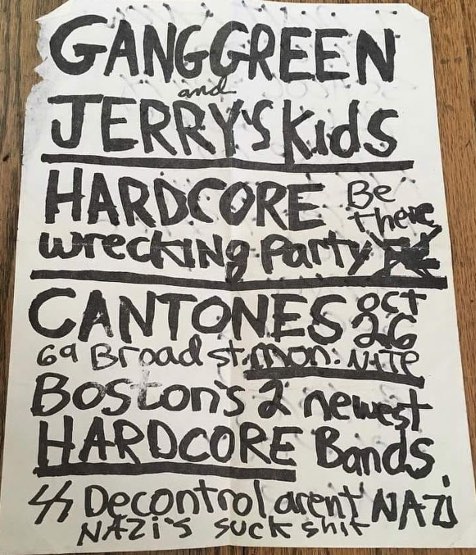 GANGGREEN
and
JERRY'S Kids
HARDCORE Be there
wrecking party
CANTONES oct 26
69 Broad st. mon: NITE
Boston's 2 newest
HARDCORE Bands
SS Decontrol arent NAZI
NAZI's suck shit